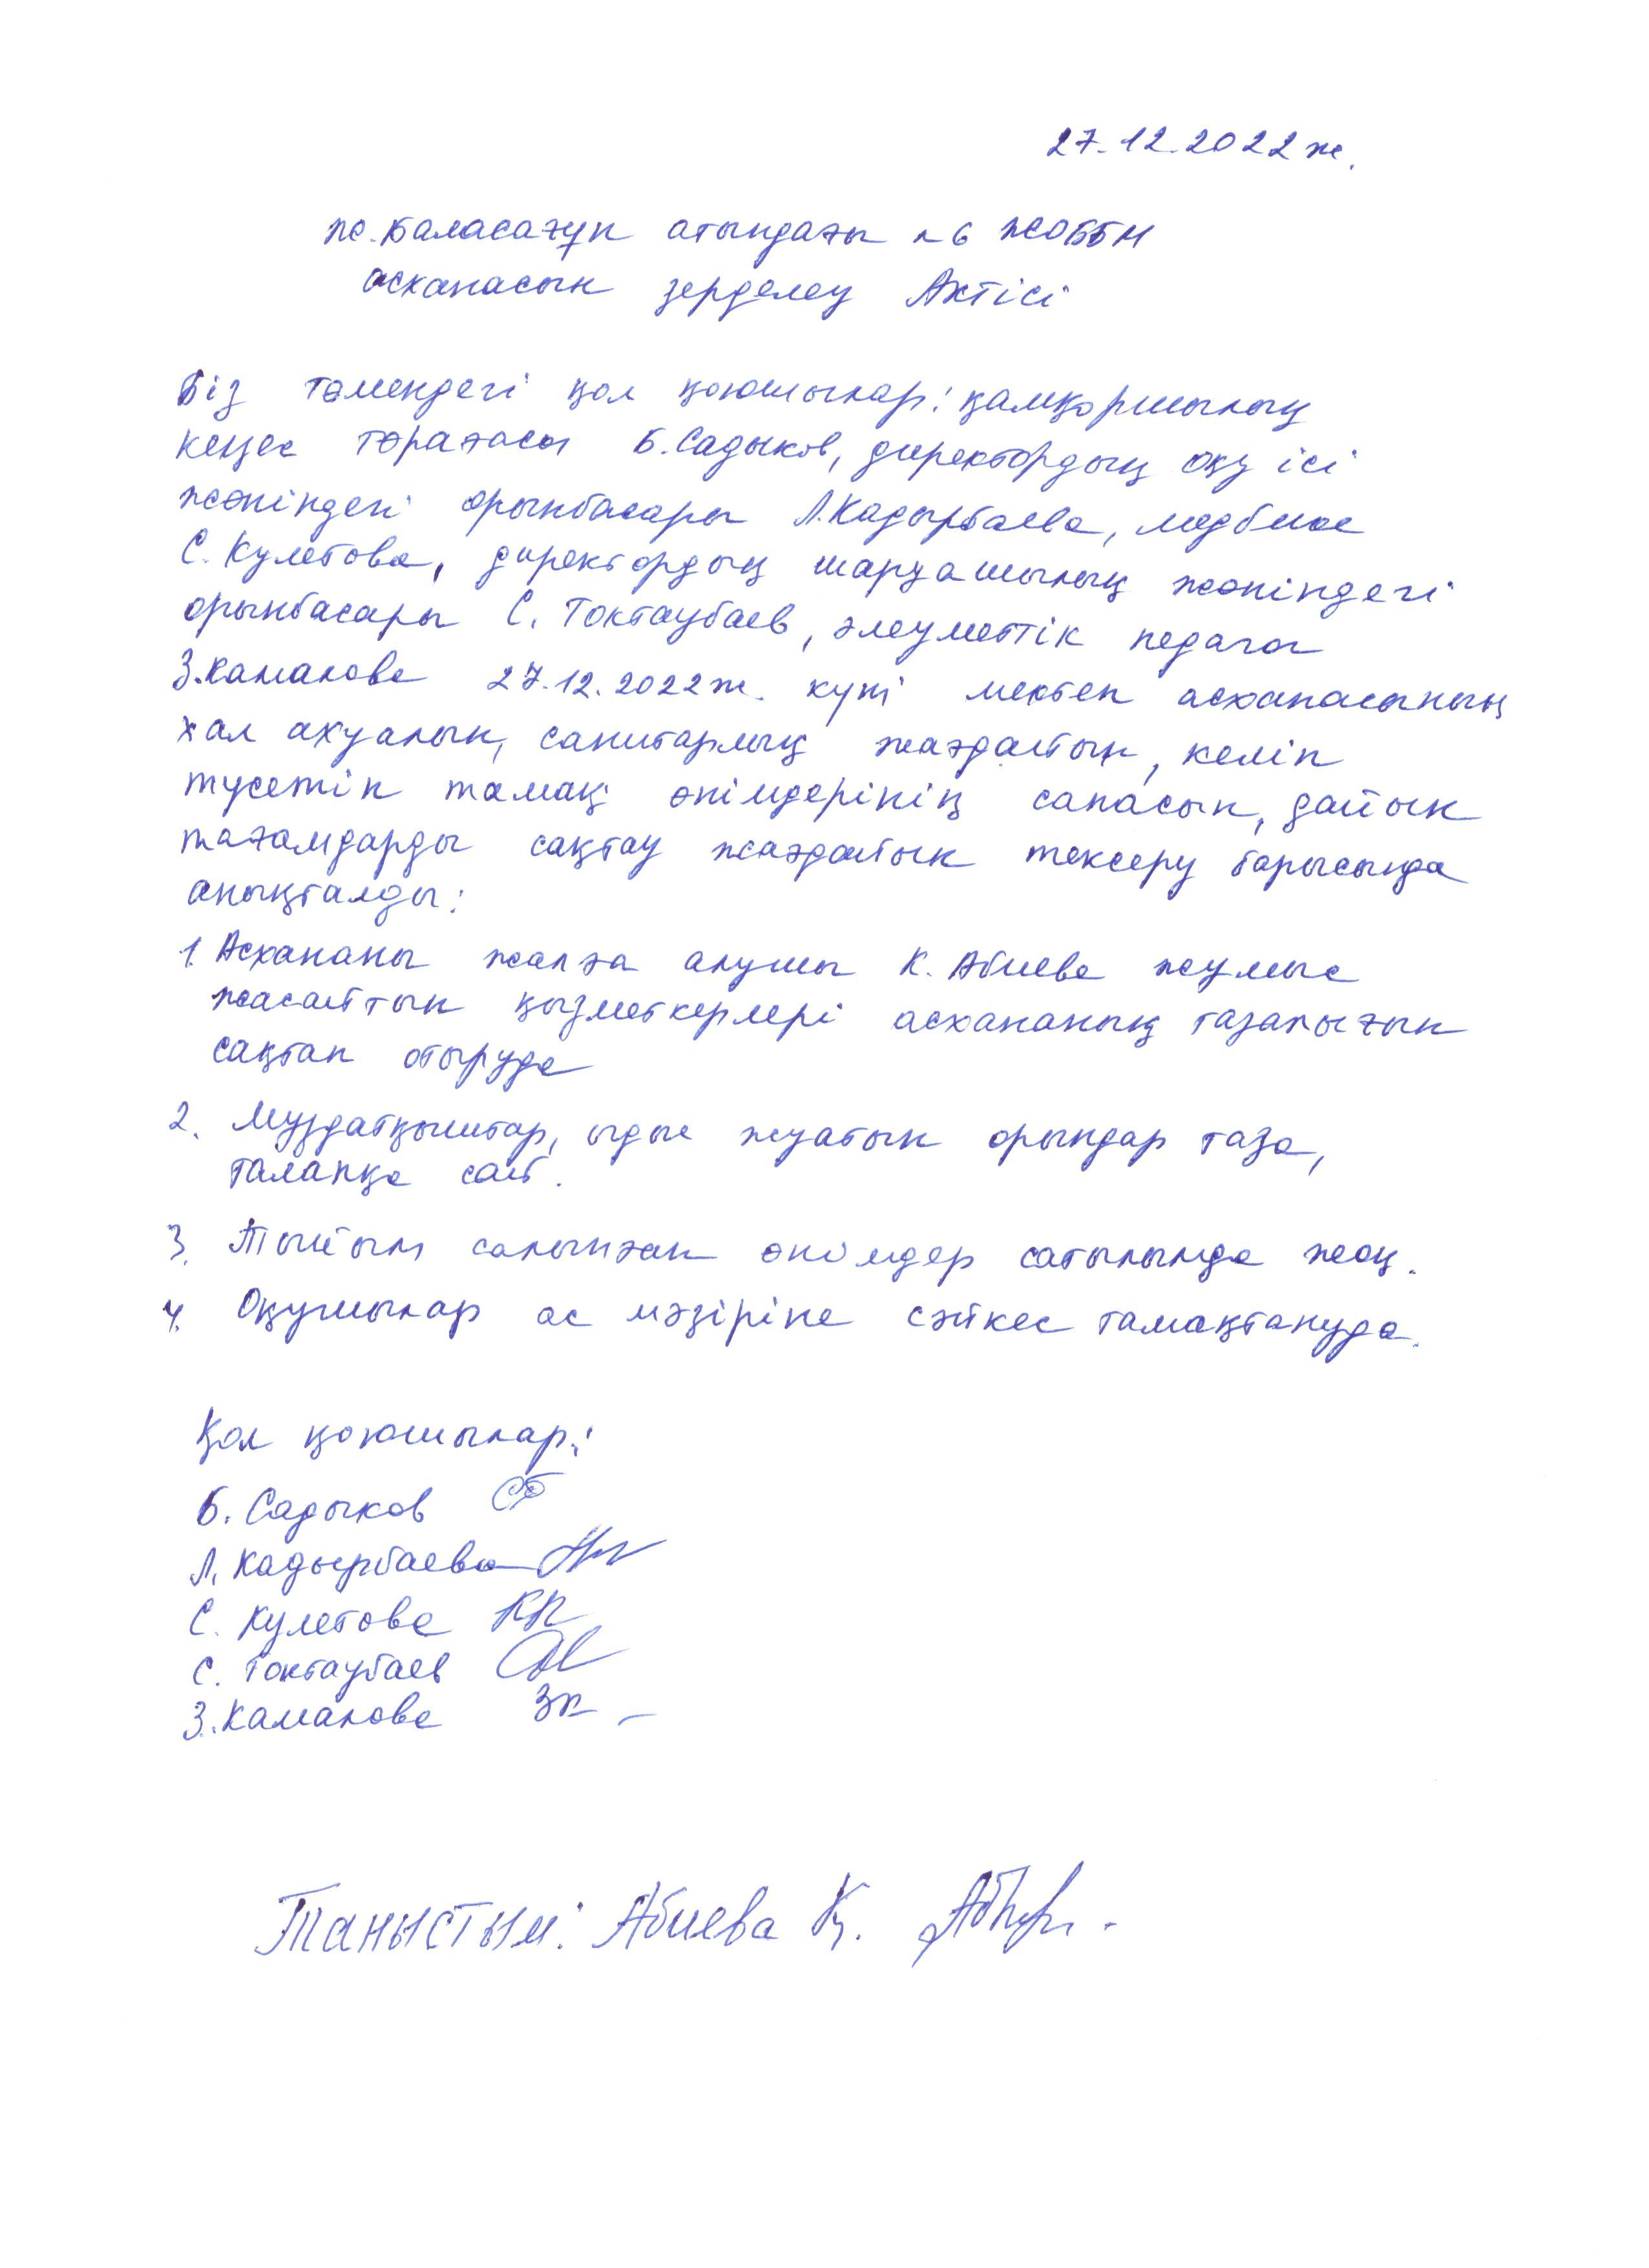 27.12.2022 ж.
Ж.Баласағұн атындағы №6 ЖОББМ
асханасын зерделеу Актісі
Біз төмендегі қол қоюшылар: қамқоршылық
кеңес төрағасы Б.Садыков, директордың оқу ісі
жөніндегі орынбасары Л.Кадырбаева, медбике
С.Кулетова, директордың шаруашылық жөніндегі
орынбасары С.Токтаубаев, әлеуметтік педагог
З.Камалова 27.12.2022ж. күні мектеп асханасының
хал ахуалын, санитарлық жағдайын, келіп
түсетін тамақ өнімдерінің сапасын, дайын
тағамдарды сақтау жағдайын тексеру барысында
анықталды:
1. Асхананы жалға алушы К. Абиева жұмыс
жасайтын қызметкерлері асхананың тазалығын
сақтап отыруда
2. Мұздатқыштар, ыдыс жуатын орындар таза,
талапқа сай.
3. Тыйым салынған өнімдер сатылымда жоқ.
4. Оқушылар ас мәзіріне сәйкес тамақтануда.
Қол қоюшылар:
Б. Садыков
Л. Кадырбаева
С. Кулетова
С. Токтаубаев
З. Камалова ЗК
Таныстым: Абиева Қ.